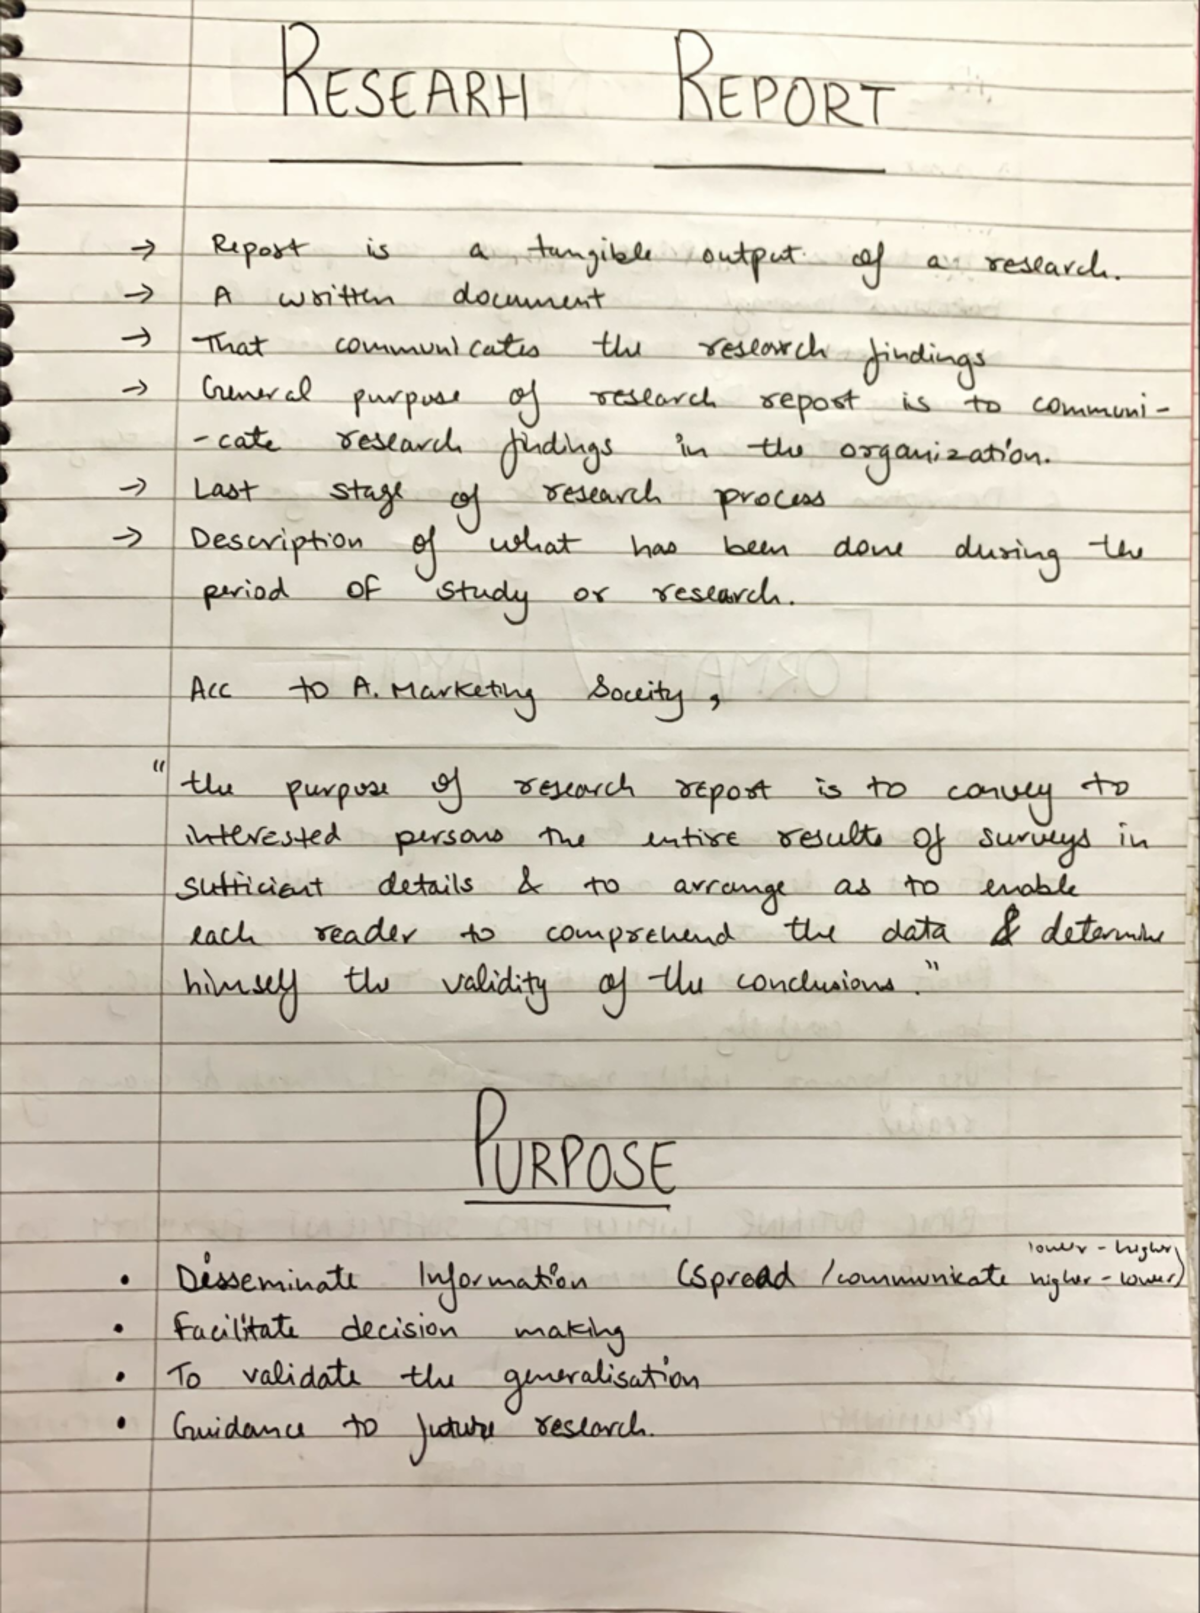 RESEARH REPORT
→ Report is a tangible output of a research.
→ A written document
→ That communicates the research findings
→ General purpose of research report is to communi-
-cate research findings in the organization.
→ Last stage of research process
→ Description of what has been done during the
period of study or research.
Acc to A. Marketing Soceity,
"the purpose of research report is to convey to
interested persons the entire results of surveys in
sufficient details & to arrange as to enable
each reader to comprehend the data & determine
himself the validity of the conclusions."
PURPOSE
lower - higher
• Disseminate Information (spread / communicate higher - lower)
• Facilitate decision making
• To validate the generalisation
• Guidance to future research.